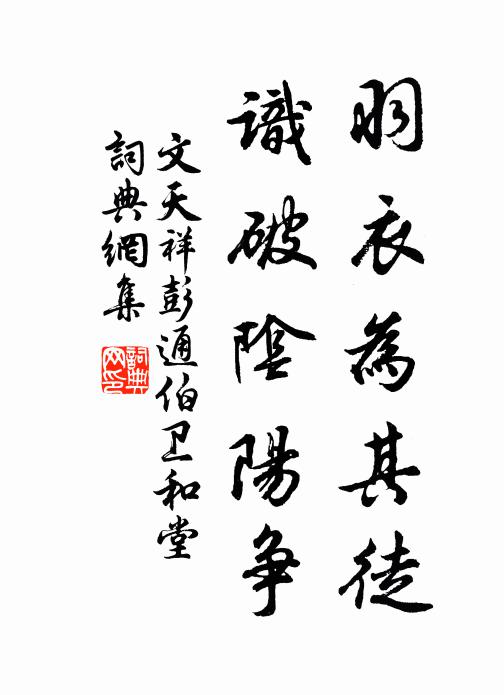 羽衣為其徒
識破陰陽争
文天祥彭通伯卫和堂
詞典網集
詞典网印